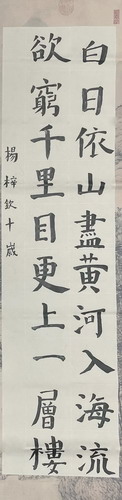 白日依山盡黃河入海流
欲窮千里目更上一層樓
楊梓欽十歲